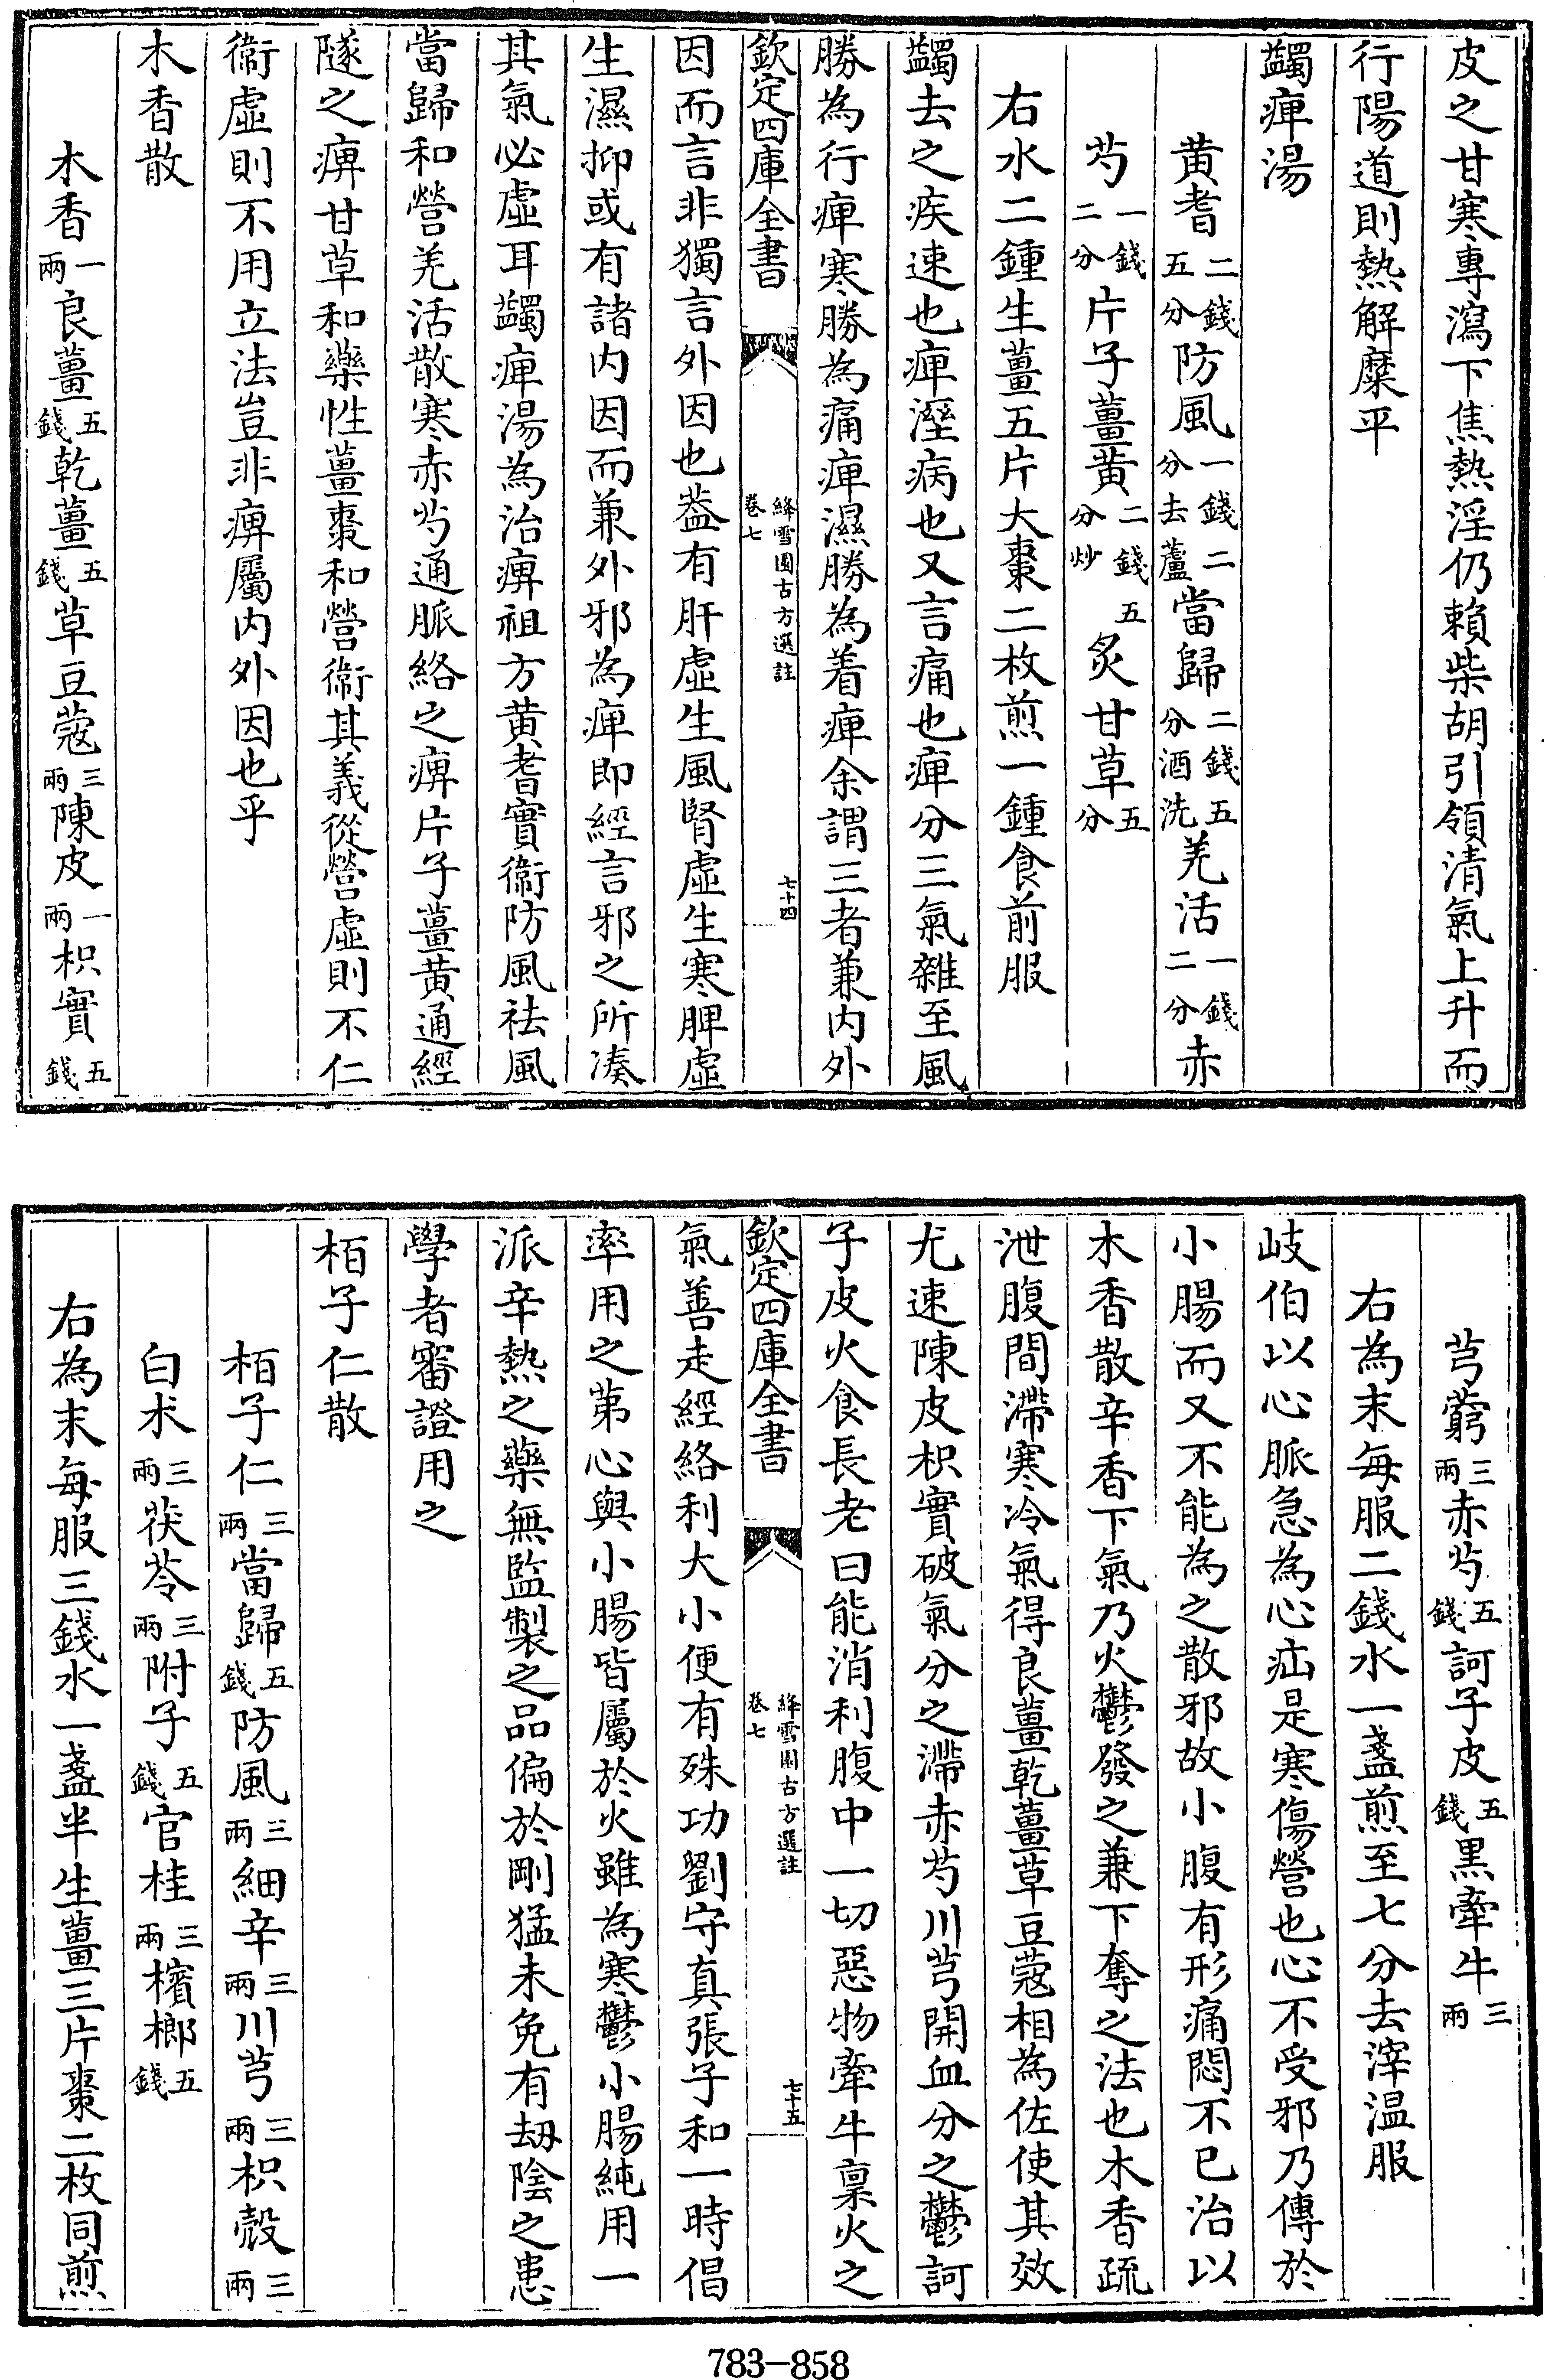 皮之甘寒專瀉下焦熱淫仍賴柴胡引領清氣上升而
行陽道則熱解糜平
蠲痺湯
黄耆二錢五分防風一錢二分去蘆當歸二錢五分酒洗羌活一錢二分赤
芍一錢二分片子薑黄二錢五分炒炙甘草五分
右水二鍾生薑五片大棗二枚煎一鍾食前服
蠲去之疾速也痺溼病也又言痛也痺分三氣雜至風
勝為行痺寒勝為痛痺濕勝為着痺余謂三者兼内外
欽定四庫全書
絳雪園古方選註
卷七
七十四
因而言非獨言外因也葢有肝虛生風腎虛生寒脾虛
生濕抑或有諸内因而兼外邪為痺即經言邪之所凑
其氣必虛耳蠲痺湯為治痹祖方黄耆實衞防風祛風
當歸和營羌活散寒赤芍通脈絡之痹片子薑黄通經
隧之痹甘草和藥性薑棗和營衞其義從營虛則不仁
衞虛則不用立法豈非痹屬内外因也乎
木香散
木香一兩良薑五錢乾薑五錢草豆蔻三兩陳皮一兩枳實五錢
芎藭三兩赤芍五錢訶子皮五錢黑牽牛三兩
右為末每服二錢水一盞煎至七分去滓温服
岐伯以心脈急為心疝是寒傷營也心不受邪乃傳於
小腸而又不能為之散邪故小腹有形痛悶不已治以
木香散辛香下氣乃火鬱發之兼下奪之法也木香疏
泄腹間滯寒冷氣得良薑乾薑草豆蔻相為佐使其效
尤速陳皮枳實破氣分之滯赤芍川芎開血分之鬱訶
子皮火食長老曰能消利腹中一切惡物牽牛稟火之
欽定四庫全書
絳雪園古方選註
卷七
七十五
氣善走經絡利大小便有殊功劉守真張子和一時倡
率用之第心與小腸皆屬於火雖為寒鬱小腸純用一
派辛熱之藥無監製之品偏於剛猛未免有刼陰之患
學者審證用之
栢子仁散
栢子仁三兩當歸五錢防風三兩細辛三兩川芎三兩枳殻三兩
白术三兩茯苓三兩附子五錢官桂三兩檳榔五錢
右為末每服三錢水一盞半生薑三片棗二枚同煎
783-858